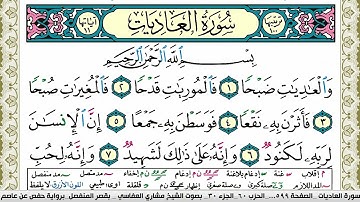 سورة العاديات
بِسْمِ ٱللَّهِ ٱلرَّحْمَٰنِ ٱلرَّحِيمِ
وَٱلْعَٰدِيَٰتِ ضَبْحًا ١ فَٱلْمُورِيَٰتِ قَدْحًا ٢ فَٱلْمُغِيرَٰتِ صُبْحًا
٣ فَأَثَرْنَ بِهِۦ نَقْعًا ٤ فَوَسَطْنَ بِهِۦ جَمْعًا ٥ إِنَّ ٱلْإِنسَٰنَ
لِرَبِّهِۦ لَكَنُودٌ ٦ وَإِنَّهُۥ عَلَىٰ ذَٰلِكَ لَشَهِيدٌ ٧ وَإِنَّهُۥ لِحُبِّ
سورة العاديات . الصفحة ٥٩٩ . الجزء ٣٠ . الحزب ٦٠ . بصوت الشيخ مشاري العفاسي . بقصر المنفصل . برواية حفص عن عاصم